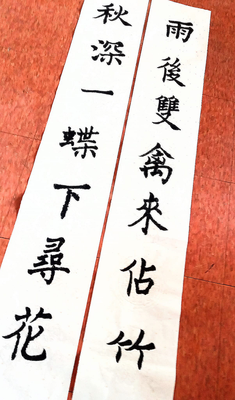 雨後雙禽來佔竹
秋深一蝶下尋花